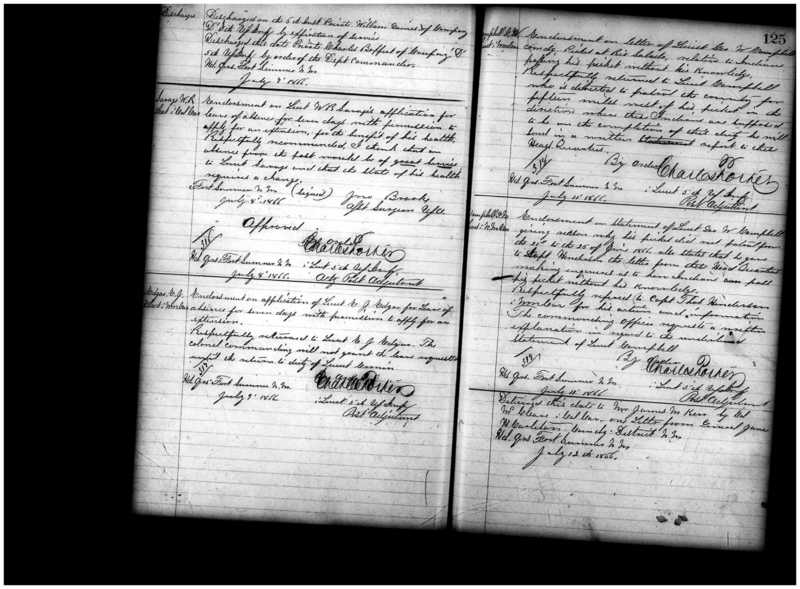 Discharges
Discharged on the 5th Inst Private William Comiesky of Company
D 5th US Infy by expiration of service
Discharged this date Private Charles Boffert of Company "D"
5th US Infy by order of the Dept Commander
Hd Qrs Fort Sumner N M
July 8" 1866.
Savage W.R.
Endorsement on Lieut W R Savage's application for
leave of absence for seven days with permission to
apply for an extension, for the benefit of his health
Respectfully recommended, I think that an
absence from the post would be of great service
to Lieut Savage and that the state of his health
requires a change.
Fort Sumner N M (signed) Jno Brooke
July 8" 1866. Asst Surgeon USA
Approved
Charles Porter
Hd Qrs Fort Sumner N M 1 Lieut 5th US Infy
July 8" 1866. Actg Post Adjutant
Edgar E.J.
Endorsement on application of Lieut E. J. Edgar for leave of
absence for seven days with permission to apply for an
extension.
Respectfully returned to Lieut E J Edgar. The
colonel commanding will not grant the leave requested
until the return to duty of Lieut
Charles Porter
Hd Qrs Fort Sumner N M 1 Lieut 5th US Infy
July 9" 1866 Post Adjutant
125
Campbell
Endorsement on letter of Lieut Geo W Campbell
comdg Picket at Rio, relative to Indians
passing his picket without his knowledge.
Respectfully returned to Lieut Campbell
who is directed to patrol the country for
fifteen miles west of his picket in the
direction where this Indians are supposed
to be on the completion of this duty he will
send in a written statement report to these
Head Quarters.
By order
Charles Porter
Hd Qrs Fort Sumner N M 1 Lieut 5th US Infy
July 11" 1866. Post Adjutant
Campbell
Endorsement on statement of Lieut Geo W Campbell
giving reason why his picket did not patrol from
the 21st to the 25 of June 1866, also states that he gave
to Capt Henderson the letter from this Head Quarters
making enquiries as to how Indians can pass
his picket without his knowledge.
Respectfully referred to Capt Thos Henderson
for his action and information
The commanding officer requests a written
explanation in regard to the enclosed
statement of Lieut Campbell
By order
Charles Porter
Hd Qrs Fort Sumner N M 1 Lieut 5th US Infy
July 11" 1866. Post Adjutant
Delivered this date to Mr James M Kerr by
one letter from General James
H Carleton Comdg District N M
Hd Qrs Fort Sumner N M
July 12th 1866.